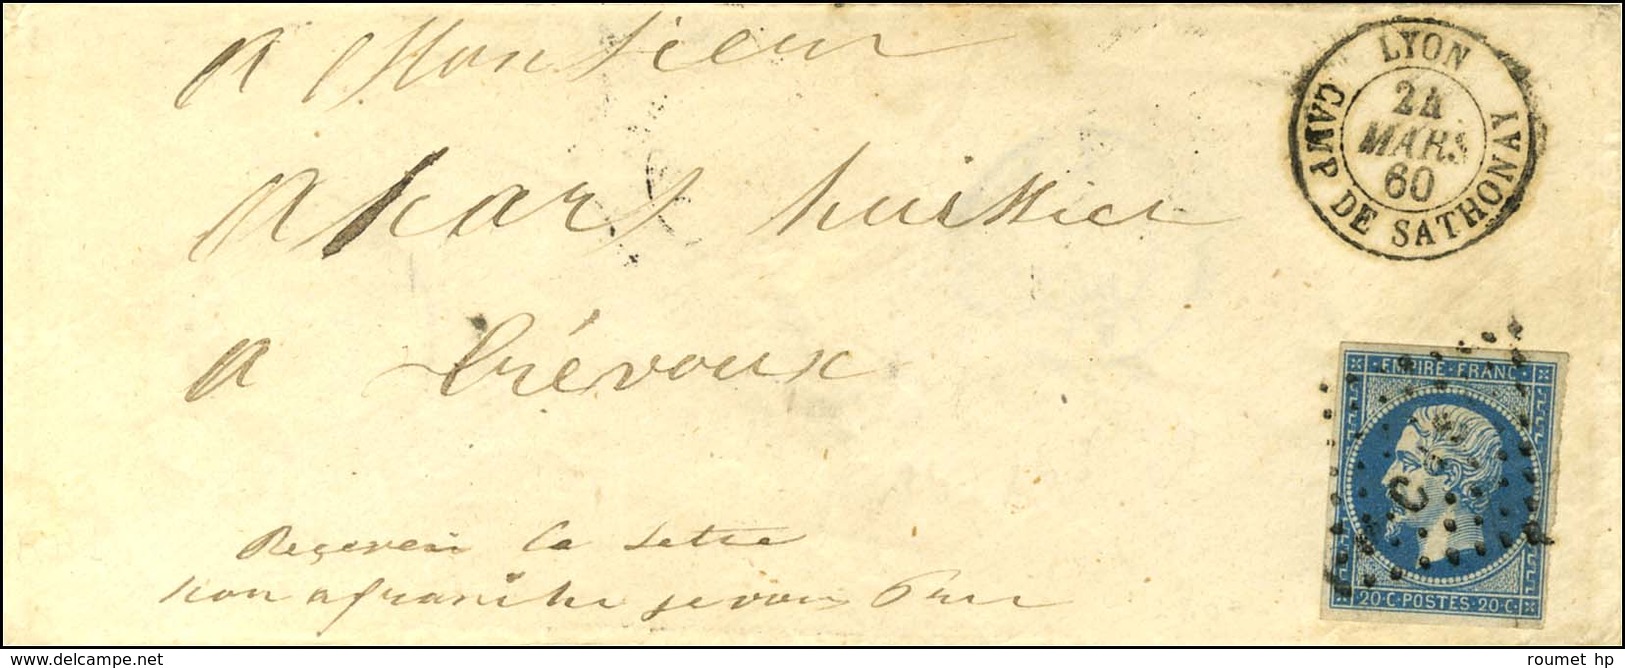 a Monsieur
huissier
a Trévoux
Reçeveir la lettre
non afranchi je vous Prie
LYON
CAMP DE SATHONAY
24
MARS
60
EMPIRE·FRANC
20·C·POSTES·20·C·
delcampe.net
roumet hp